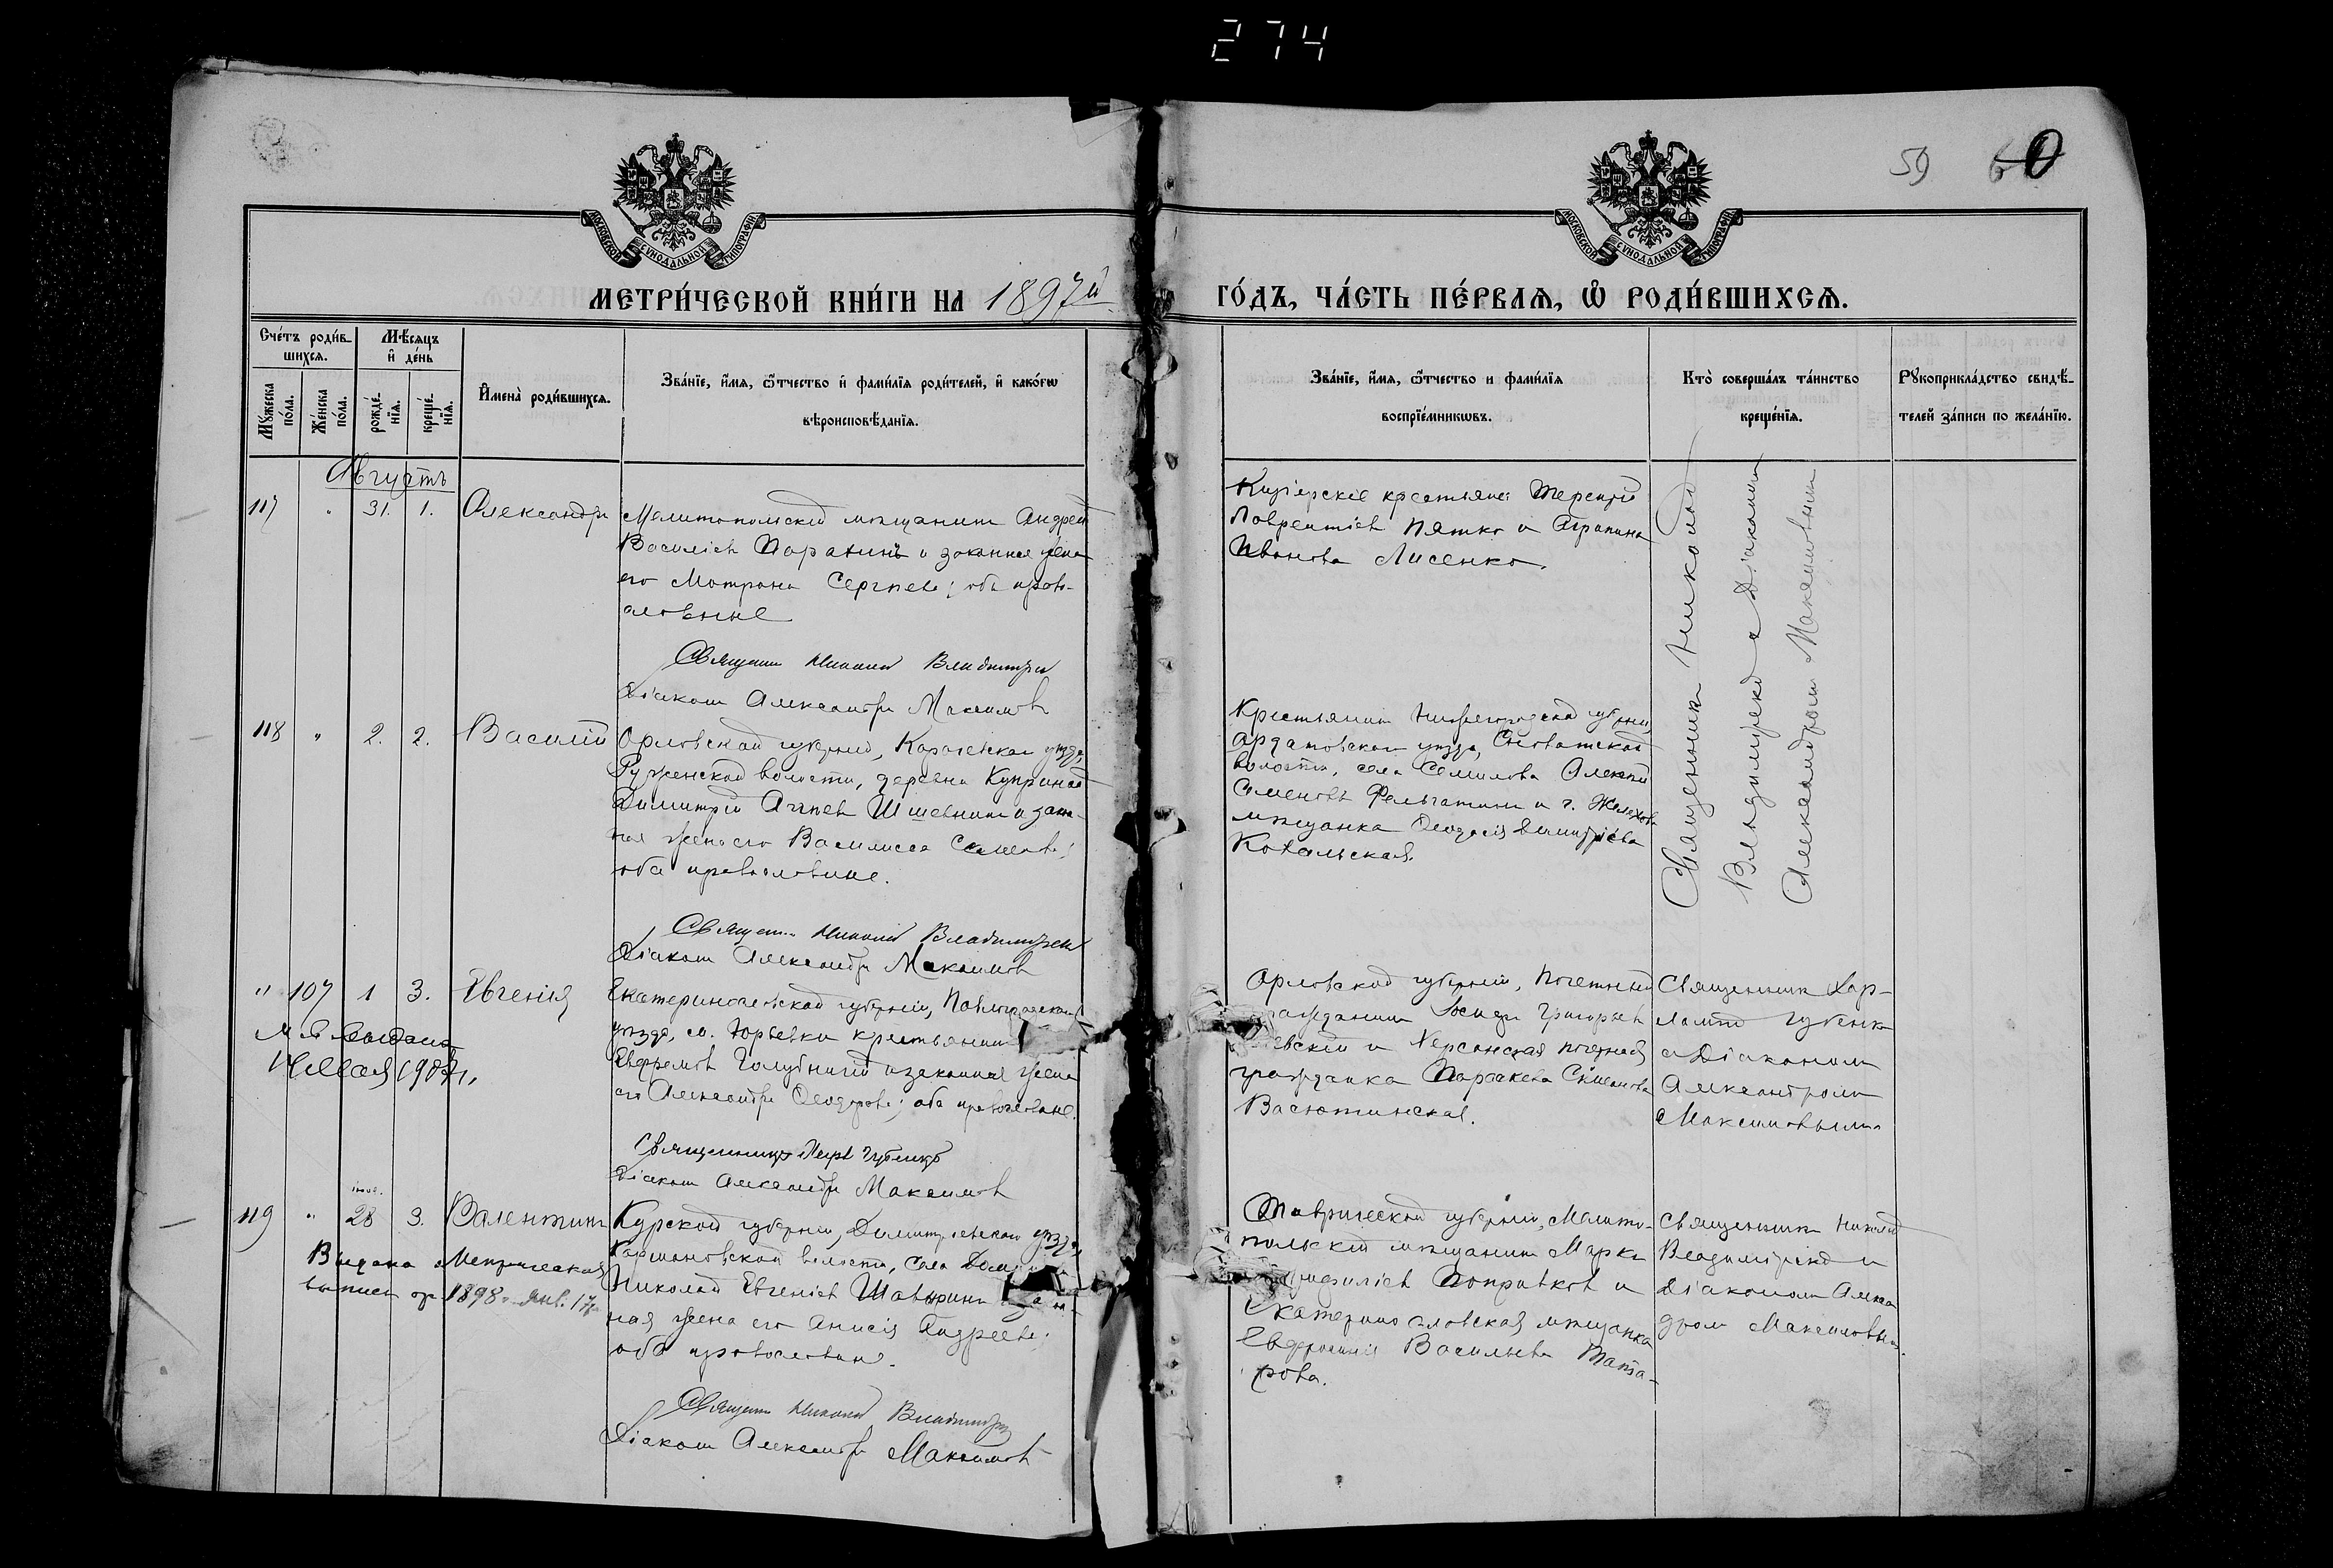 274
59 60
МОСКОВСКОЙ СѴНОДАЛЬНОЙ ТИПОГРАФІИ
МОСКОВСКОЙ СѴНОДАЛЬНОЙ ТИПОГРАФІИ
МЕТРИ́ЧЕСКОЙ КНИ́ГИ НА 1897й
ГО́ДЪ, ЧА́СТЬ ПЕ́РВАЯ, Ѡ҆ РОДИ́ВШИХСЯ.
Сче́тъ роди́в-
шихся.
Мѣ́сяцъ
и҆ де́нь
Мꙋ́жеска по́ла.
Же́нска по́ла.
рожде́-
нїя.
креще́-
нїя.
И҆мена̀ роди́вшихся.
Зва́нїе, и҆́мя, ѻ҆́тчество и҆ фами́лїя роди́телей, и҆ како́гѡ
вѣроисповѣ́данїя.
Зва́нїе, и҆́мя, ѻ҆́тчество и фами́лїя
воспрїе́мникѡвъ.
Кто̀ соверша́лъ та́инство
креще́нїя.
Рꙋкоприкла́дство свидѣ́-
телей за́писи по жела́нїю.
Августъ
117 " 31. 1. Александръ
Мелитопольскій мѣщанинъ Андрей
Василіевъ Паранинъ и законная жена
его Матрона Сергѣева; оба право-
славные
Священн. Николай Владимірскій
Діаконъ Александръ Максимовъ
крестьяне Терентій
Лаврентіевъ Пятко и Агрипина
Иванова Лисенко.
Священникъ Николай
Владимірскій и Діакономъ
Александромъ Максимовымъ
118 " 2. 2. Василій
Орловской губерніи, Карачевскаго уѣзда,
волости, деревни
Димитрій и закон-
ная жена его Василисса
оба православные.
Священн. Николай Владимірскій
Діаконъ Александръ Максимовъ
Крестьянинъ Нижегородской губерніи,
Ардатовскаго уѣзда,
волости, села Семилова Алексѣй
Семеновъ и г.
мѣщанка Ѳеодосія Димитріева
Ковальская.
" 107 1 3. Евгенія
М. В. выдана
1907 г.
Екатеринославской губерніи, Павлоградскаго
уѣзда, с. Юрьевки крестьянинъ
Евфремовъ Голубничій и законная жена
его Александра Ѳеодорова; оба православные.
Священникъ Губенко
Діаконъ Александръ Максимовъ
Орловской губерніи, Почетный
гражданинъ Григорьевъ
и Херсонская почетная
гражданка Параскева
Васютинская.
Священникъ Хар-
лампій Губенко
съ Діакономъ
Александромъ
Максимовымъ
119 " 28 3. Валентинъ
Выдана Метрическая
выпись 1898 г. Янв. 17
Курской губерніи, Димитріевскаго уѣзда,
волости, села
Николай Евгеніевъ и закон-
ная жена его Анисія Андреева;
оба православные.
Священн. Николай Владимірскій
Діаконъ Александръ Максимовъ
Таврической губерніи, Мелито-
польскій мѣщанинъ Маркъ
Поправковъ и
Екатеринославская мѣщанка
Евфросинія Васильева Тата-
рова.
Священникъ Николай
Владимірскій и
Діакономъ Алексан-
дромъ Максимовымъ.